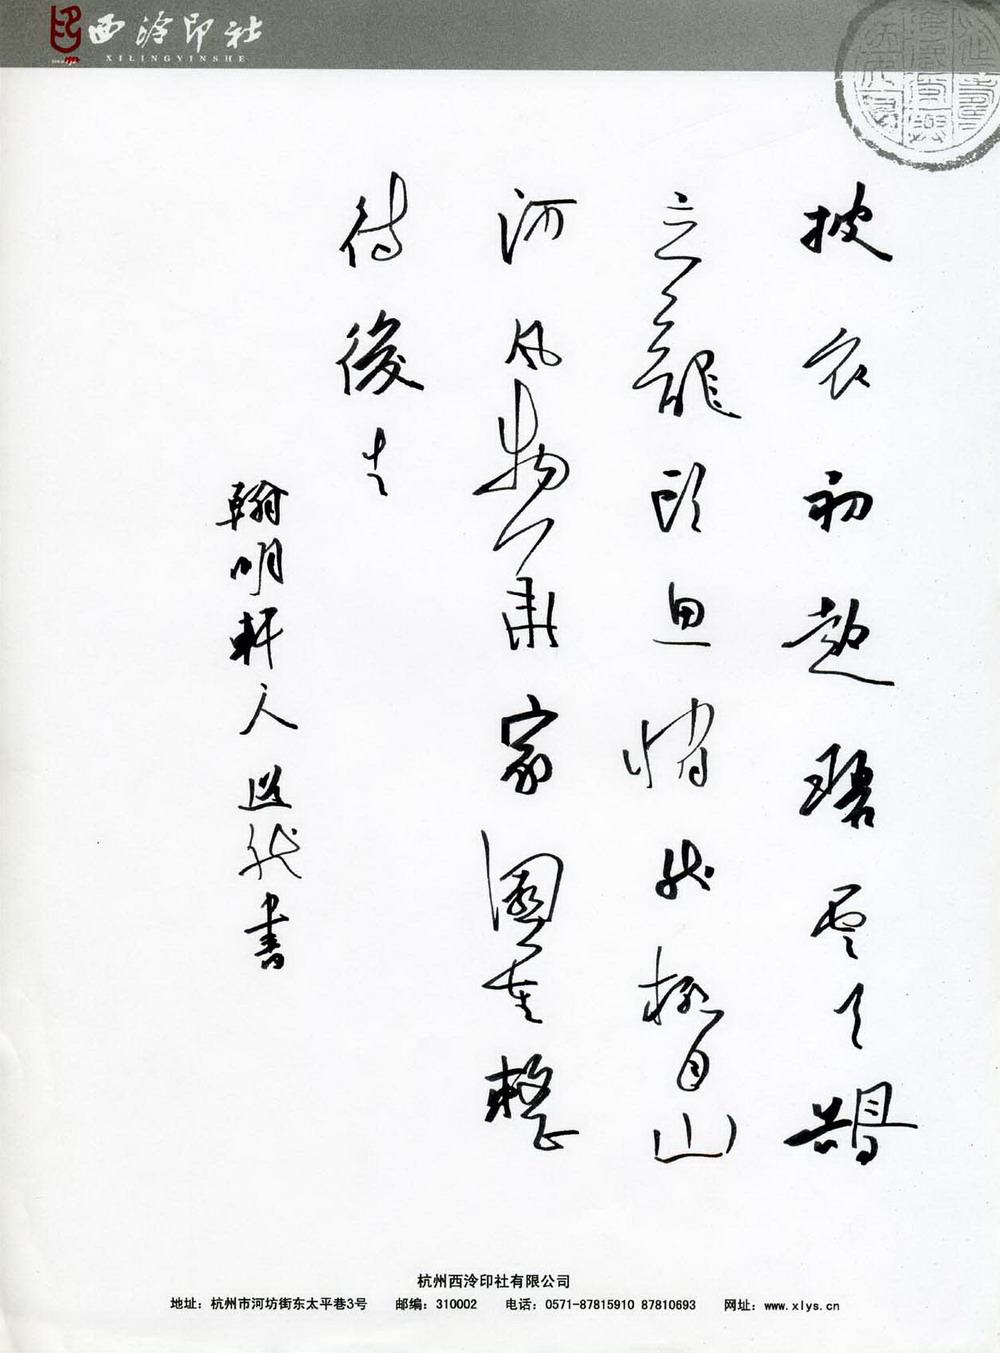 西泠印社
XILINGYINSHE
披衣初起碧雲天鵠
立龍頭思悄然極目山
河風物肅家國重整
待後生
翰明軒人 然書
杭州西泠印社有限公司
地址：杭州市河坊街东太平巷3号 邮编：310002 电话：0571-87815910 87810693 网址：www.xlys.cn